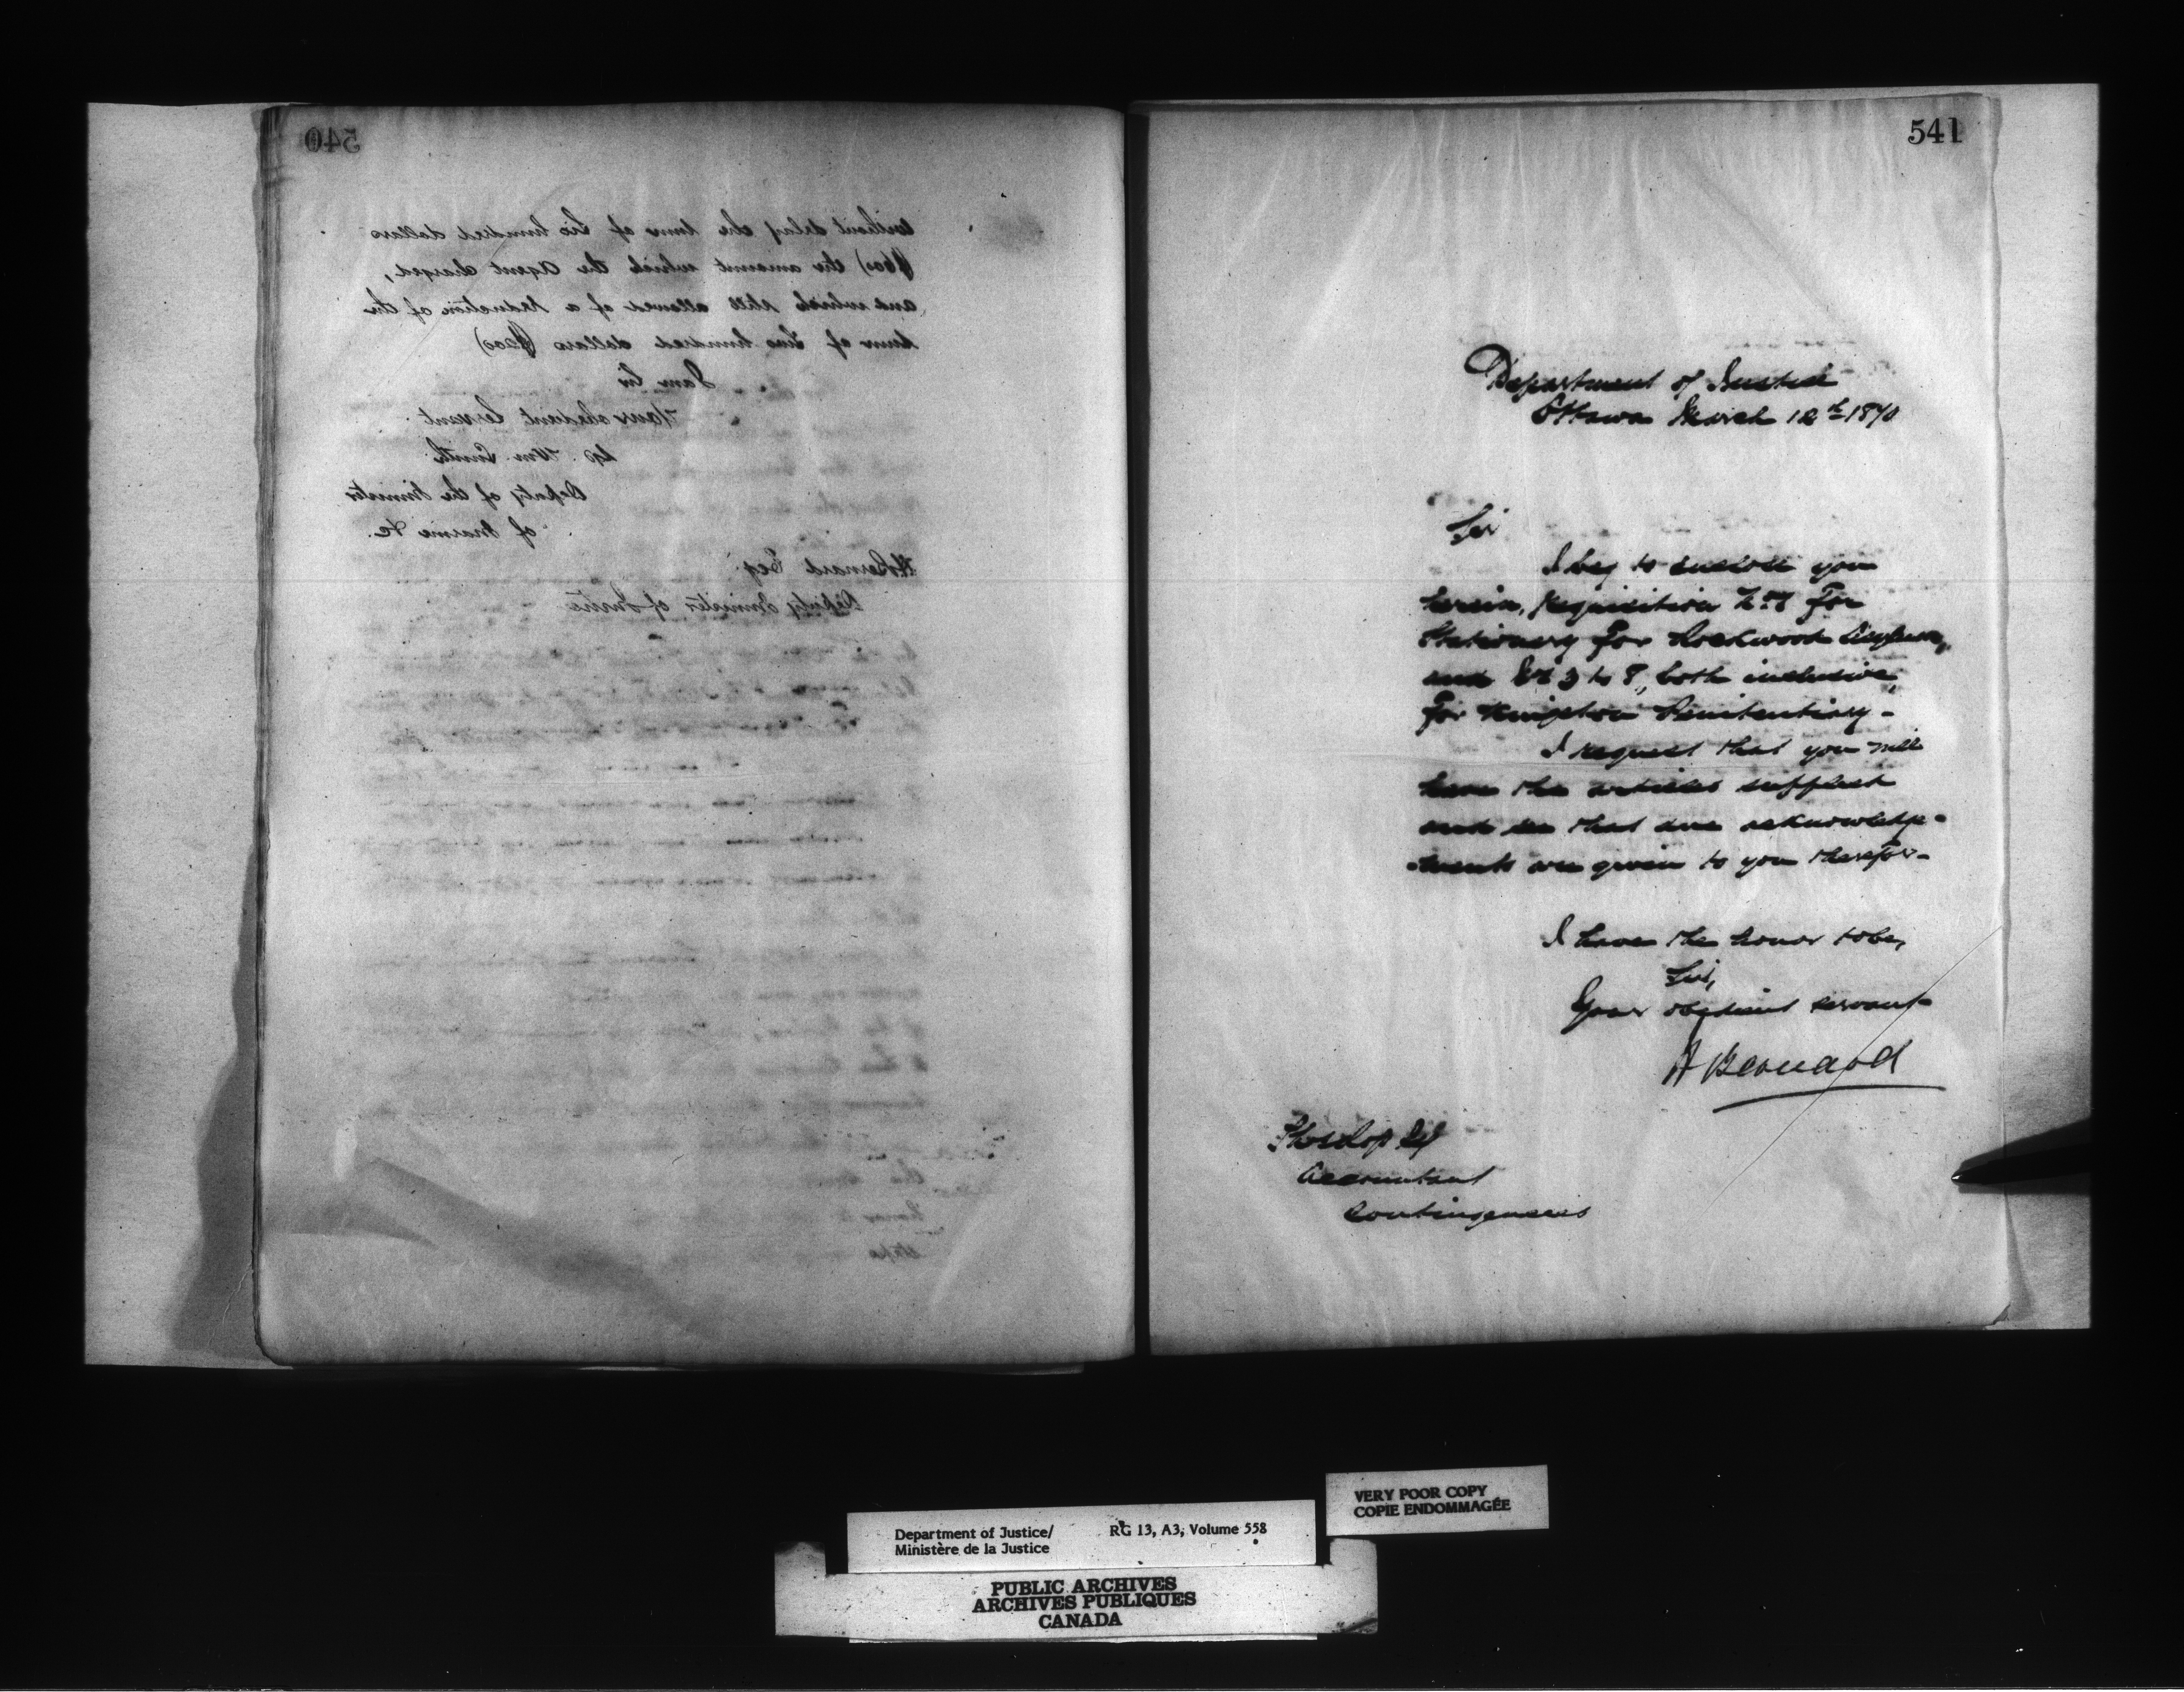 540
without delay the sum of Six hundred dollars
($600) the amount which the Agent charged,
and which still allowed of a reduction of the
sum of Two hundred dollars ($200)
I am Sir
Your obedient Servant
Sgd. Wm. Smith
Deputy of the Minister
of Marine &c.
H Bernard Esq.
Deputy Minister of Justice
541
Department of Justice
Ottawa March 12th 1870
Sir
I beg to enclose you
herein, Requisition for
Stationery for Rockwood Asylum,
and 3 to 8, both inclusive,
for Kingston Penitentiary -
I request that you will
have the articles supplied
and see that due acknowledge-
-ments are given to you therefor -
I have the honor to be,
Sir,
Your obedient servant
H Bernard
Thos Ross Esq
Accountant
Contingencies
VERY POOR COPY
COPIE ENDOMMAGÉE
Department of Justice/ RG 13, A3, Volume 558
Ministère de la Justice
PUBLIC ARCHIVES
ARCHIVES PUBLIQUES
CANADA